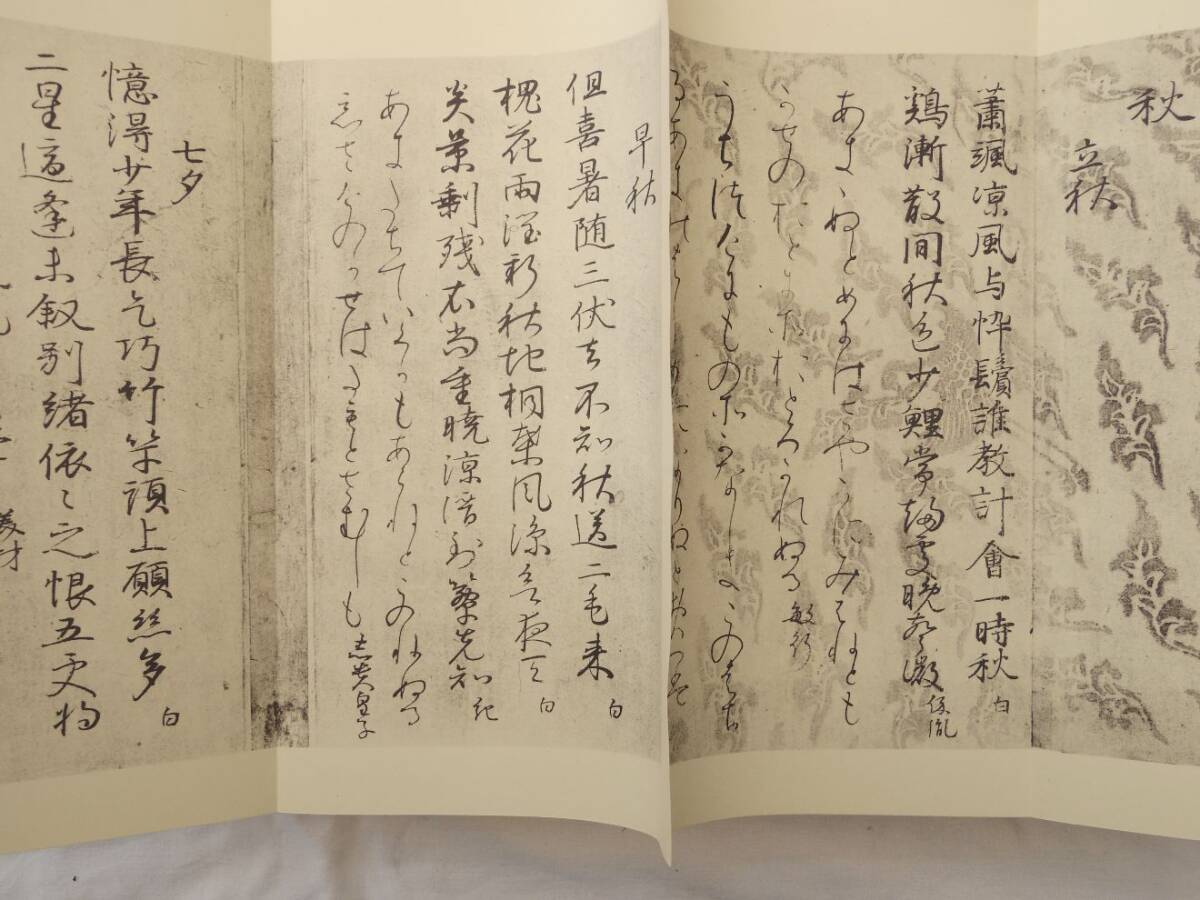 秋
立秋
蕭颯凉風与悴鬢誰教計會一時秋 白
鶏漸散間秋色少鯉常趍處晩聲微 保胤
あきゝぬとめにはさやかにみえねとも
かせのおとにそおとろかれぬる 敏行
うちつけにものそかなしきこのはち
るあきのはしめになりぬとおもへは
早秋
但喜暑随三伏去不知秋送二毛来 白
槐花雨潤新秋地桐葉風凉欲夜天 白
炎景剰残衣尚重晩凉潜到簟先知 紀
あきたちていくかもあらねとこのねぬる
あさけのかせはたもとさむしも 志貴皇子
七夕
憶得少年長乞巧竹竿頭上願絲多 白
二星適逢未叙別緒依々之恨五更将
美材